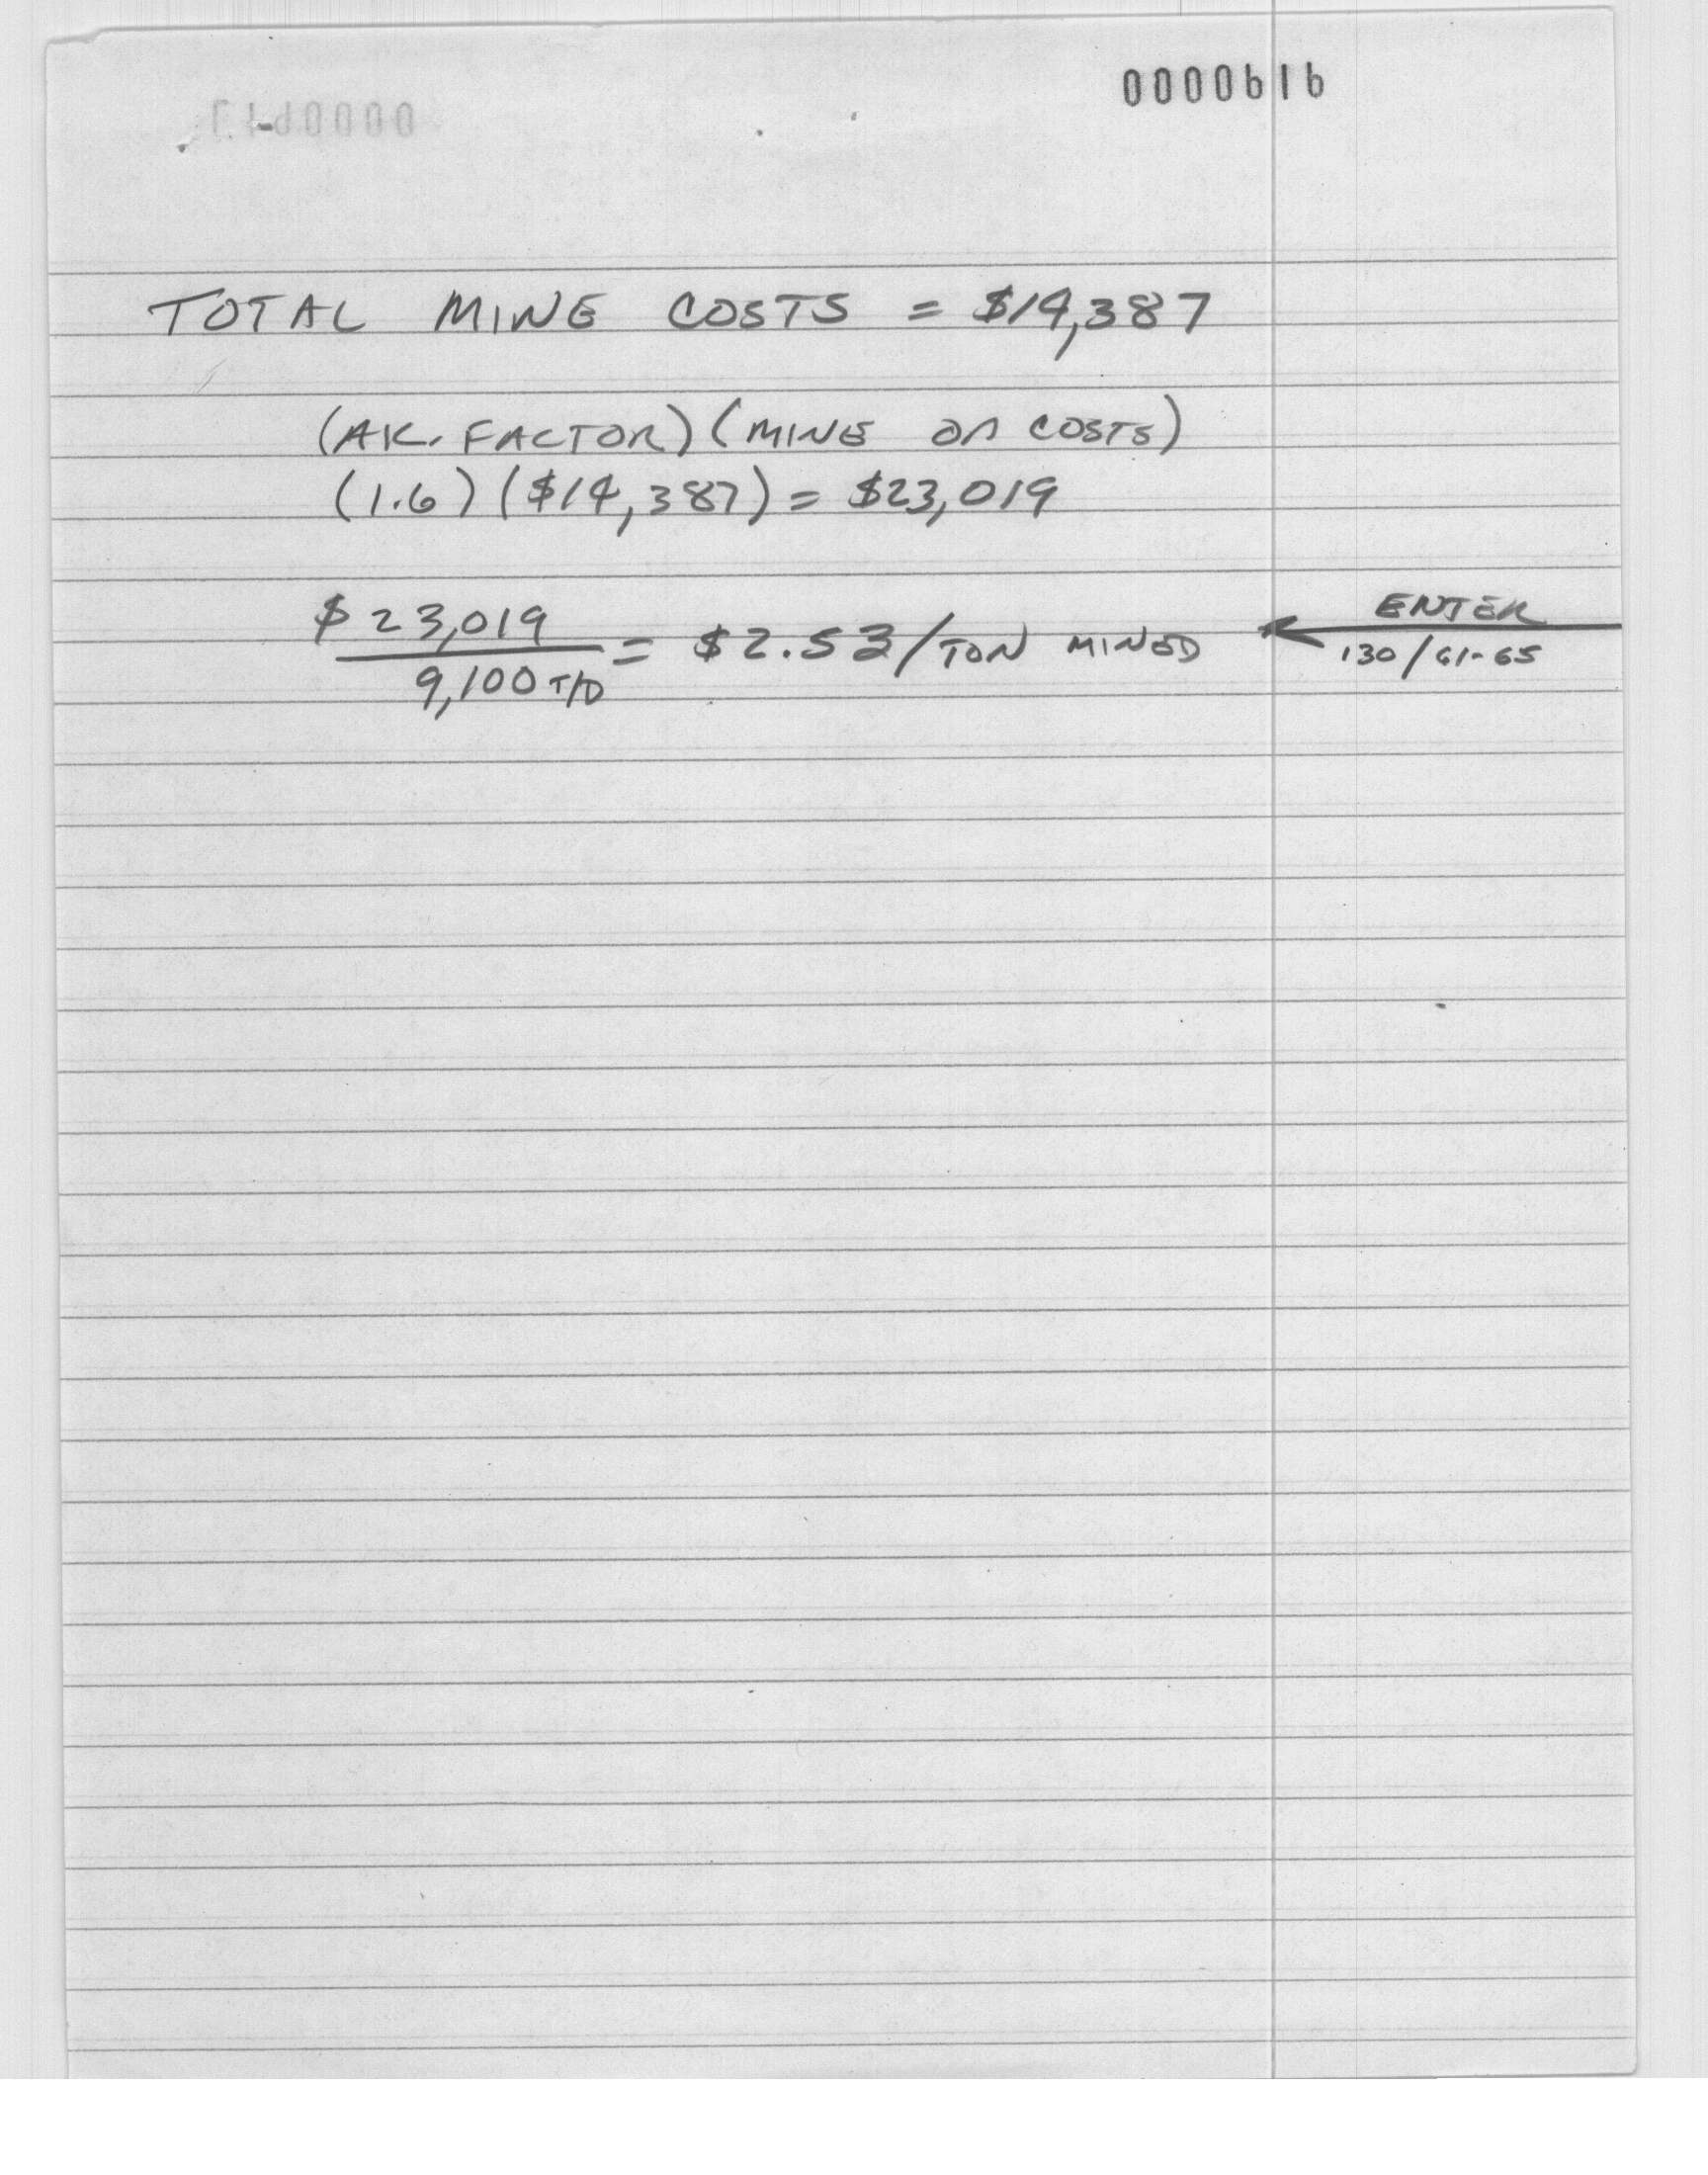 0000616
TOTAL MINE COSTS = $14,387
(AK. FACTOR) (MINE OP COSTS)
(1.6) ($14,387) = $23,019
$23,019 / 9,100 T/D = $2.53/TON MINED
ENTER
130/61-65